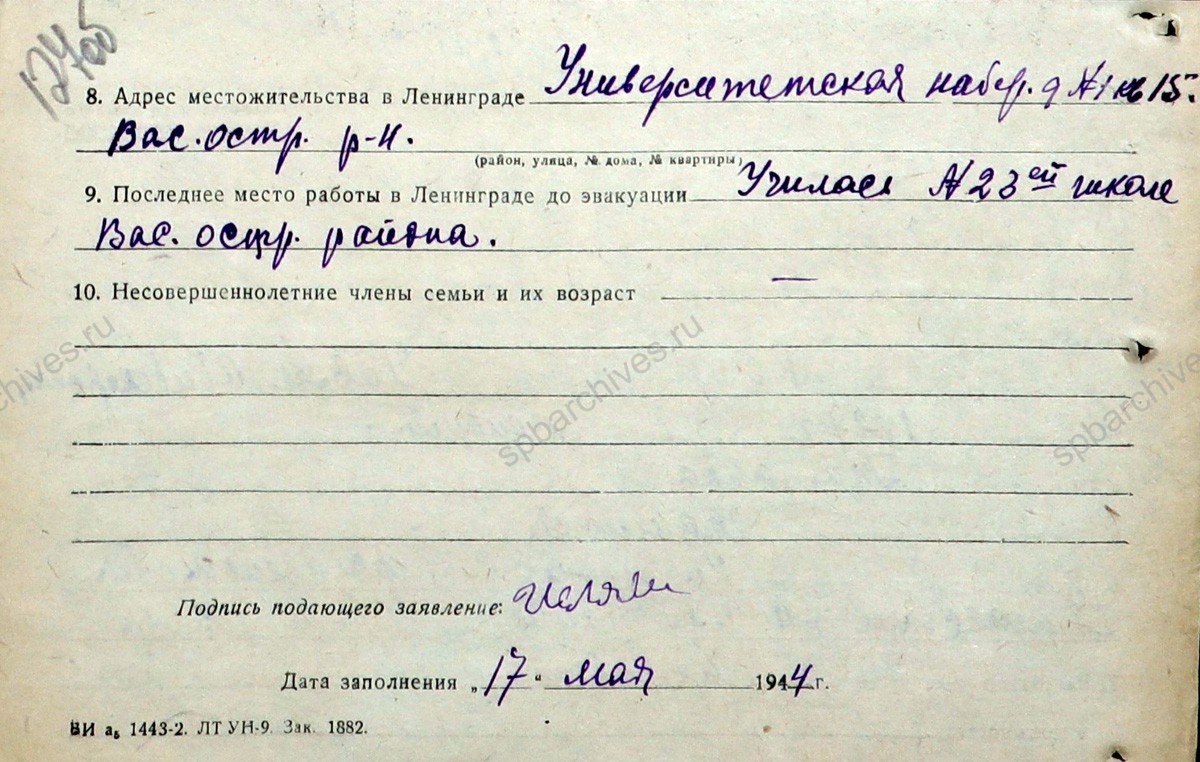 8. Адрес местожительства в Ленинграде Университетская набер. д №1 кв 15.
Вас. остр. р-н.
(район, улица, № дома, № квартиры)
9. Последнее место работы в Ленинграде до эвакуации Училась №23ей школе
Вас. остр. района.
10. Несовершеннолетние члены семьи и их возраст —
spbarchives.ru
Подпись подающего заявление:
Дата заполнения „17“ мая 1944 г.
ВИ аб 1443-2. ЛТ УН-9. Зак. 1882.